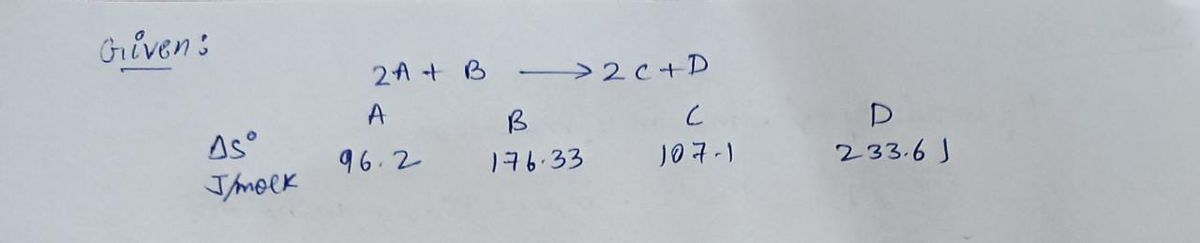 Given:
2A + B → 2C + D
A B C D
ΔS° 96.2 176.33 107.1 233.6 J
J/molK